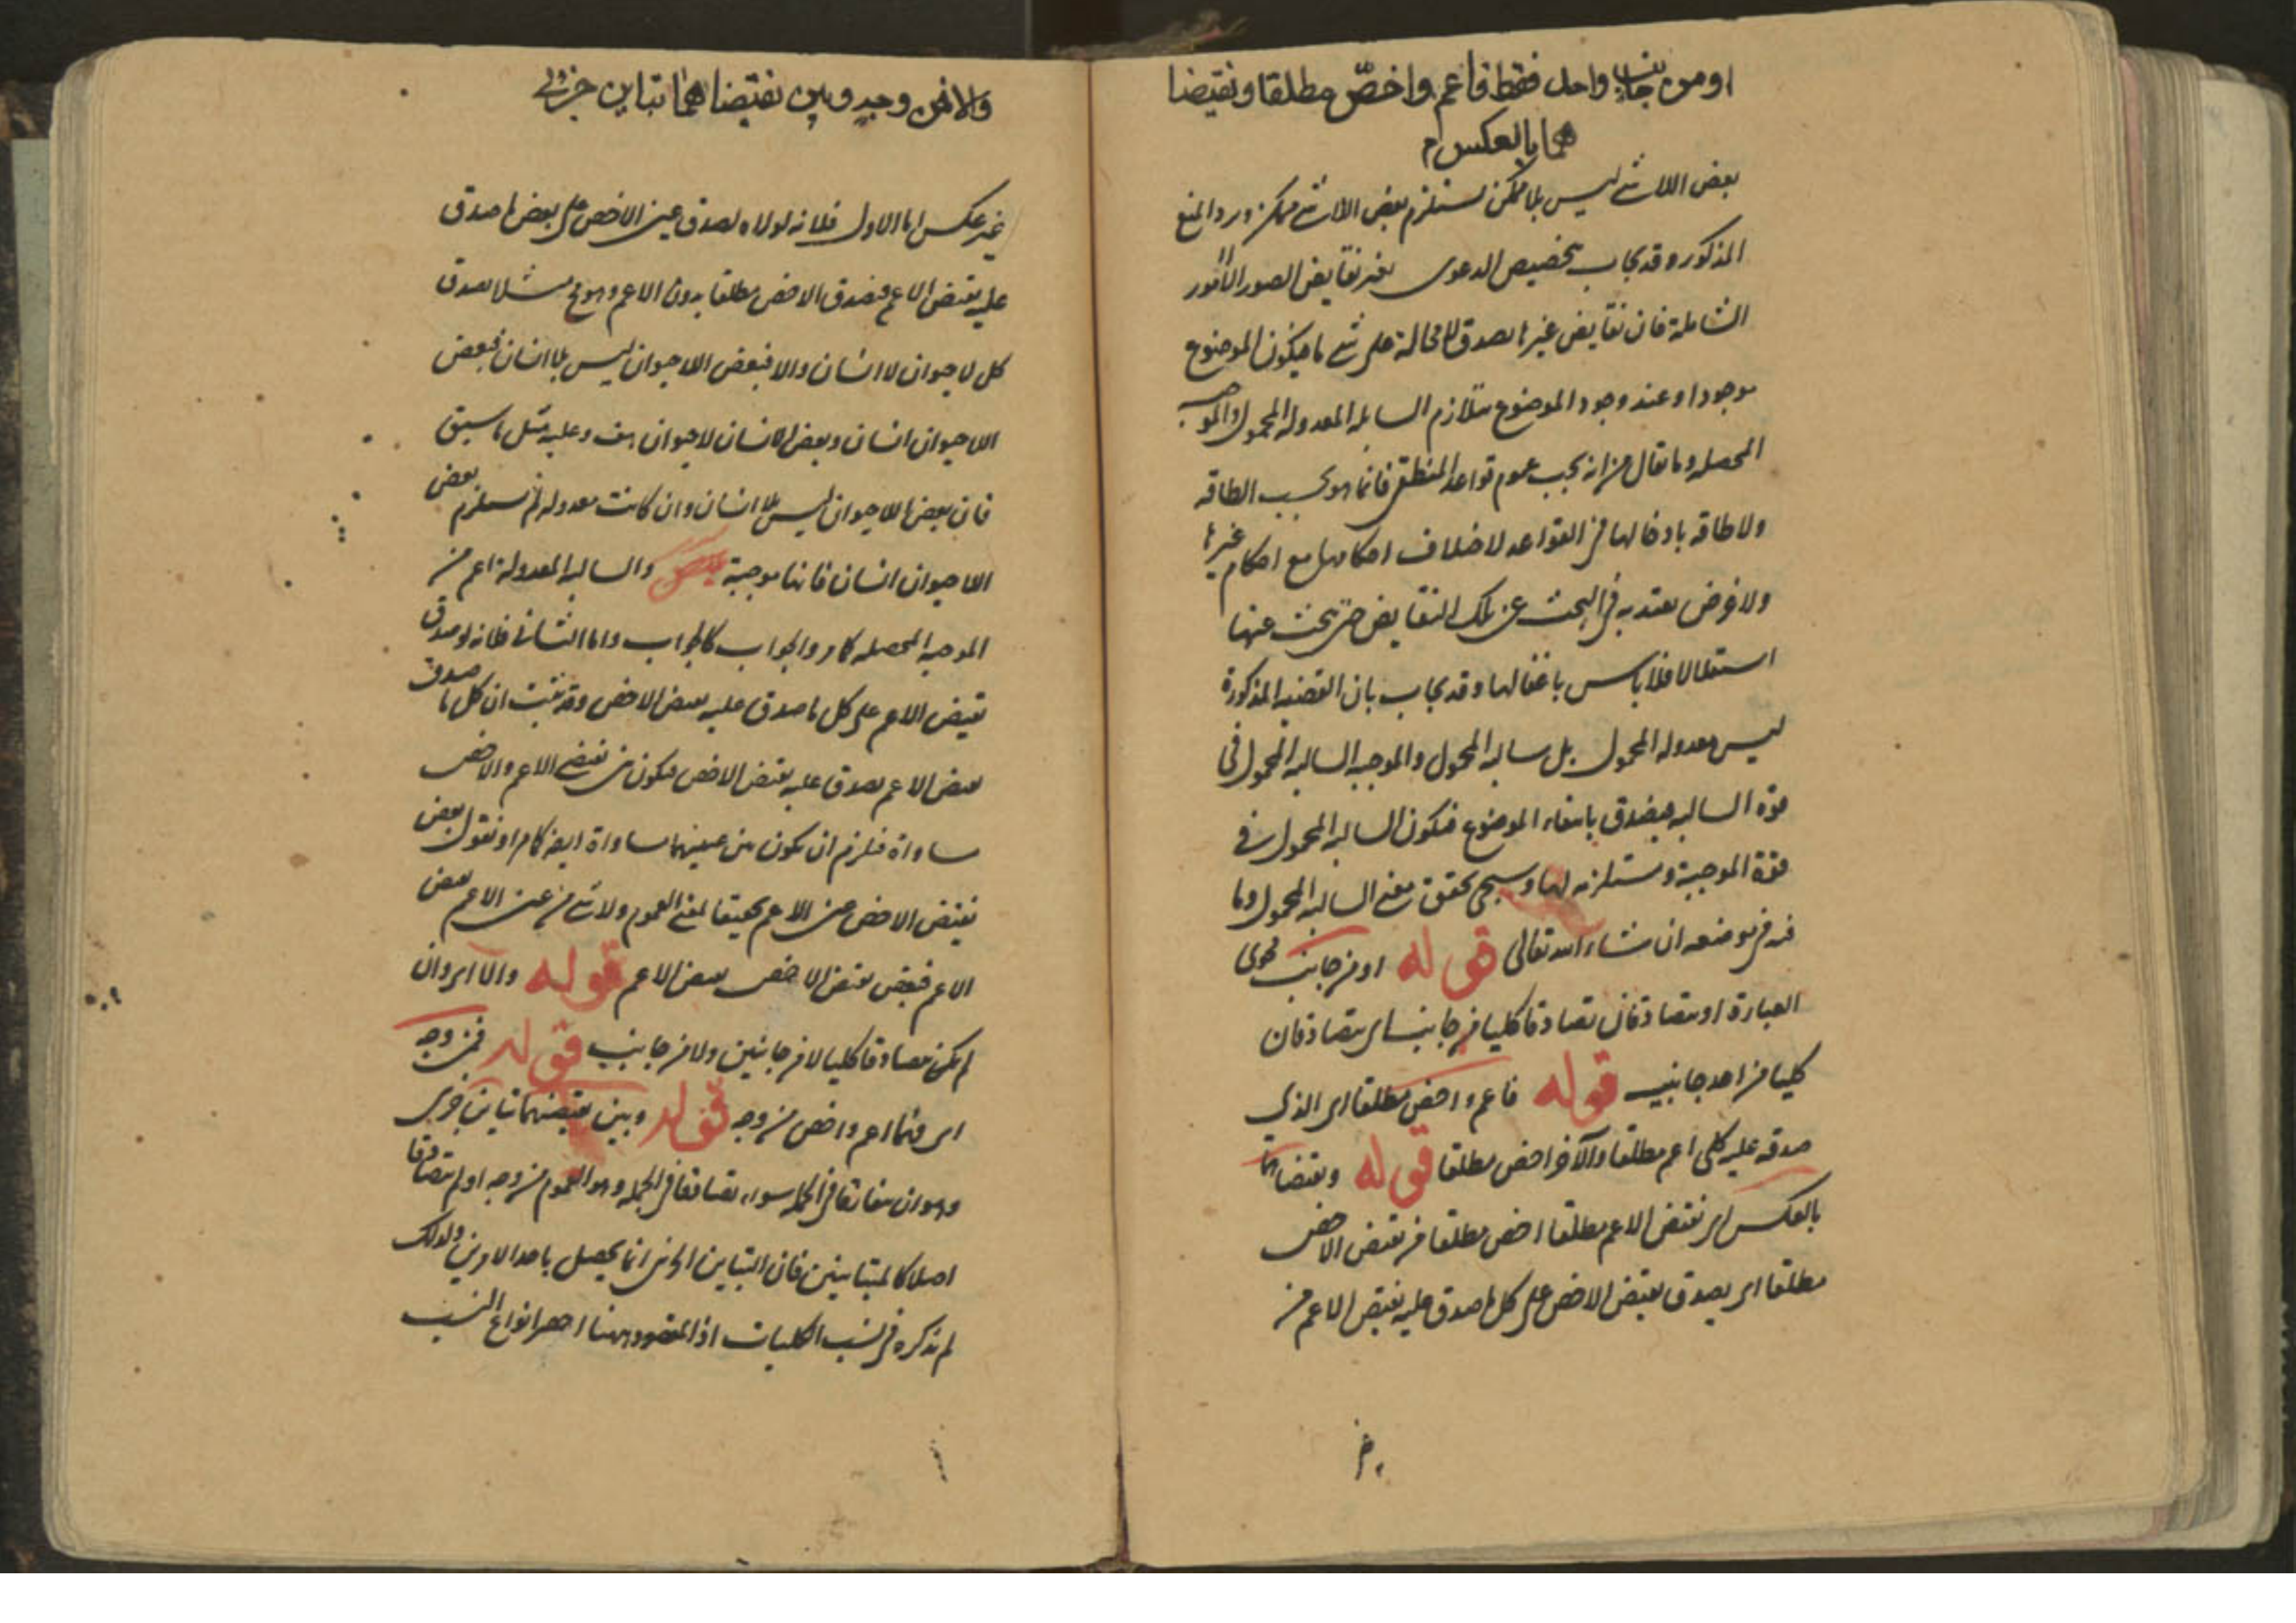 او من جانب واحد فقط فاعم واخصّ مطلقا ونقيضا
هما بالعكس م
بعض اللا شئ ليس بلا ممكن لستلزم بعض اللا شئ ممكن ورد المنع
المذكور وقد يجاب بتخصيص الدعوى بغير نقايض الصور الامور
الشاملة فان نقايض غيرها يصدق لا محالة على شئ ما فيكون الموضوع
موجودا وعند وجود الموضوع يتلازم السالبه المعدوله المحمول والموجبه
المحصله وما يقال من انه يجب عموم قواعد المنطق فانما هو بحسب الطاقه
ولا طاقه بادخالها في القواعد لاختلاف احكامها مع احكام غيرها
ولا غرض يعتد به في البحث عن تلك النقايض حتى يبحث عنها
استقلالا فلا باس باغفالها وقد يجاب بان القضيه المذكورة
ليس معدوله المحمول بل سالبه المحمول والموجبه السالبه المحمول في
قوه السالبه فيصدق بانتفاء الموضوع فيكون السالبه المحمول في
قوة الموجبة ومستلزمه لها وسيجئ تحقق معنى السالبه المحمول وما
فيه في موضعه ان شاء الله تعالى قوله او من جانب فحوى
العبارة او يتصادقان تصادقا كليا من جانب اى يتصادقان
كليا من احد جانبيه قوله فاعم واخص مطلقا اى الذي
صدقه عليه كلى اعم مطلقا والآخر اخص مطلقا قوله ونقيضاهما
بالعكس اى نقيض الاعم مطلقا اخص مطلقا من نقيض الاخص
مطلقا اى يصدق نقيض الاخص على كل ما صدق عليه نقيض الاعم من
والا فمن وجه وبين نقيضاهما تباين جزئى
غير عكس اما الاول فلانه لولاه لصدق عين الاخص على بعض ما صدق
عليه نقيض الاعم فيصدق الاخص مطلقا بدون الاعم وهو مح مثلا يصدق
كل لا حيوان لا انسان والا فبعض اللا حيوان ليس بلا انسان فبعض
اللا حيوان انسان وبعض الانسان لا حيوان هف وعليه مثل ما سبق
فان بعض اللا حيوان ليس بلا انسان وان كانت معدوله لم يستلزم بعض
اللا حيوان انسان فانها موجبة والسالبه المعدولة اعم من
الموجبه المحصله كما مر والجواب كالجواب واما الثانى فلانه لو صدق
نقيض الاعم على كل ما صدق عليه نقيض الاخص وقد ثبت ان كل ما صدق
نقيض الاعم يصدق عليه نقيض الاخص فيكون بين نقيضى الاعم والاخص
مساواة فلزم ان يكون بين عينيهما مساواة ايضا كما مر او نقول بعض
نقيض الاخص عين الاعم تحقيقا لمعنى العموم ولا شئ من عين الاعم بعض
الاعم فبعض نقيض الاخص ليس نقيض الاعم قوله والا اى وان
لم يكن تصادقا كليا لا من جانبين ولا من جانب قوله فمن وجه
اى فهما اعم واخص من وجه قوله وبين نقيضهما تباين جزئى
وهو ان يتفارقا فى الجمله سواء تصادقا فى الجمله وهو العموم من وجه او لم يتصادقا
اصلا كالمتباينين فان التباين الجزئى انما يحصل باحد الامرين ولذلك
لم يذكره فى نسب الكليات اذ المقصود ههنا احصر انواع النسب